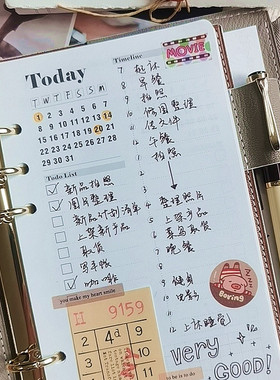 Today
T W T F S S M
1 2 3 4 5 6 7
8 9 10 11 12 13 14
15 16 17 18 19 20 21
22 23 24 25 26 27 28
29 30 31
Todo List
新品拍照
图片整理
新品计划清单
上架新产品
取货
写手帐
咖啡
you make my heart smile
日 9159
2 4 11
1 3
Timeline
MOVIE
7 起床
8 早餐
9 拍照
10 修图整理
11 传文件
12 午餐
1 拍照
2
3
4 整理照片
5 上架产品
6 菜鸟取货
7 晚餐
8
9 健身
10 电影
11
12 上床睡觉
Boring
to be is to do
very
GOOD!